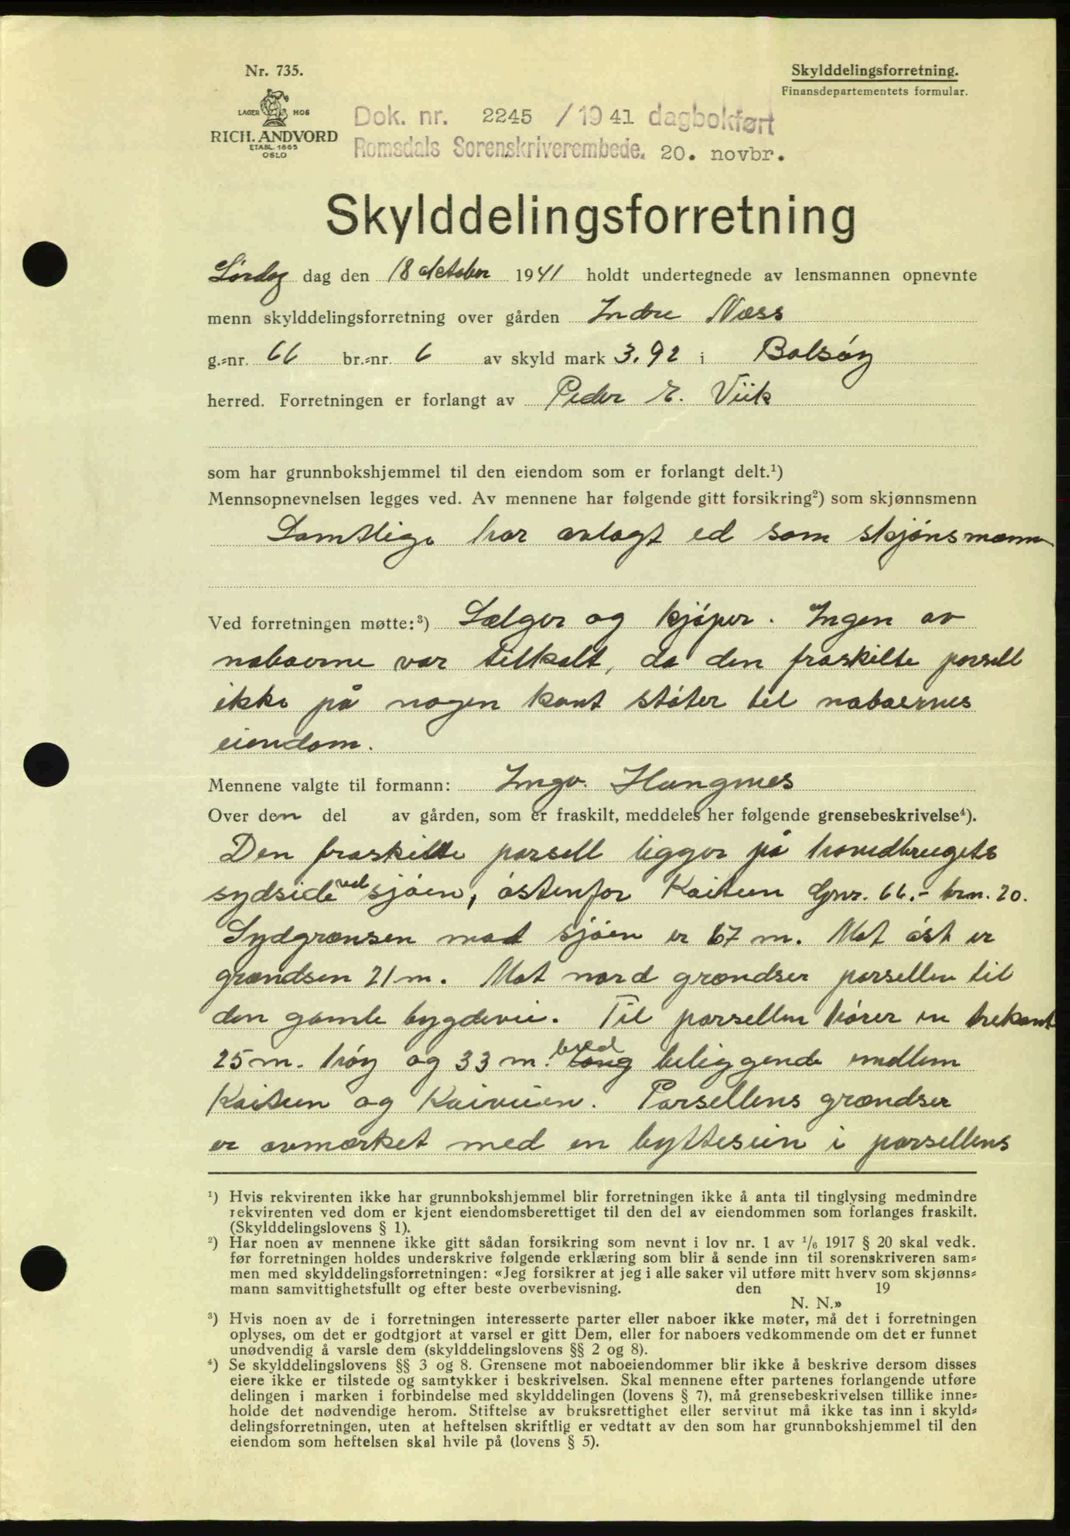 Nr. 735.
LAGER HOS
RICH. ANDVORD
ETABL. 1865
OSLO
Skylddelingsforretning.
Finansdepartementets formular.
Dok. nr. 2245 / 1941 dagbokført
Romsdals Sorenskriverembede. 20. novbr.
Skylddelingsforretning
Lørdag dag den 18 oktober 1941 holdt undertegnede av lensmannen opnevnte
menn skylddelingsforretning over gården Indre Næss
g.=nr. 66 br.=nr. 6 av skyld mark 3.92 i Bolsøy
herred. Forretningen er forlangt av Peder E. Viik
som har grunnbokshjemmel til den eiendom som er forlangt delt.¹)
Mennsopnevnelsen legges ved. Av mennene har følgende gitt forsikring²) som skjønnsmenn
Samtlige har avlagt ed som skjønsmænn
Ved forretningen møtte:³) Sælger og kjøper. Ingen av
naboerne var tilkalt, da den fraskilte parsell
ikke på nogen kant støter til naboernes
eiendom.
Mennene valgte til formann: Ingv. Haugnes
Over den del av gården, som er fraskilt, meddeles her følgende grensebeskrivelse⁴).
Den fraskilte parsell ligger på hovedbrugets
sydside ved sjøen, østenfor Kaiteen Gnr. 66.- brn. 20.
Sydgrænsen mod sjøen er 67 m. Mot øst er
grændsen 21 m. Mot nord grændser parsellen til
den gamle bygdevei. Til parsellen hører en trekant
25 m. høy og 33 m. bred beliggende mellem
og Kaiveien. Parsellens grændser
er avmerket med en byttestein i parsellens
¹) Hvis rekvirenten ikke har grunnbokshjemmel blir forretningen ikke å anta til tinglysing medmindre
rekvirenten ved dom er kjent eiendomsberettiget til den del av eiendommen som forlanges fraskilt.
(Skylddelingslovens § 1).
²) Har noen av mennene ikke gitt sådan forsikring som nevnt i lov nr. 1 av ¹/₆ 1917 § 20 skal vedk.
før forretningen holdes underskrive følgende erklæring som blir å sende inn til sorenskriveren sam=
men med skylddelingsforretningen: «Jeg forsikrer at jeg i alle saker vil utføre mitt hverv som skjønns=
mann samvittighetsfullt og efter beste overbevisning. den 19
N. N.»
³) Hvis noen av de i forretningen interesserte parter eller naboer ikke møter, må det i forretningen
oplyses, om det er godtgjort at varsel er gitt Dem, eller for naboers vedkommende om det er funnet
unødvendig å varsle dem (skylddelingslovens §§ 2 og 8).
⁴) Se skylddelingslovens §§ 3 og 8. Grensene mot naboeiendommer blir ikke å beskrive dersom disses
eiere ikke er tilstede og samtykker i beskrivelsen. Skal mennene efter partenes forlangende utføre
delingen i marken i forbindelse med skylddelingen (lovens § 7), må grensebeskrivelsen tillike inne=
holde det nødvendige herom. Stiftelse av bruksrettighet eller servitut må ikke tas inn i skyld=
delingsforretningen, uten at heftelsen skriftlig er vedtatt av den som har grunnbokshjemmel til den
eiendom som heftelsen skal hvile på (lovens § 5).